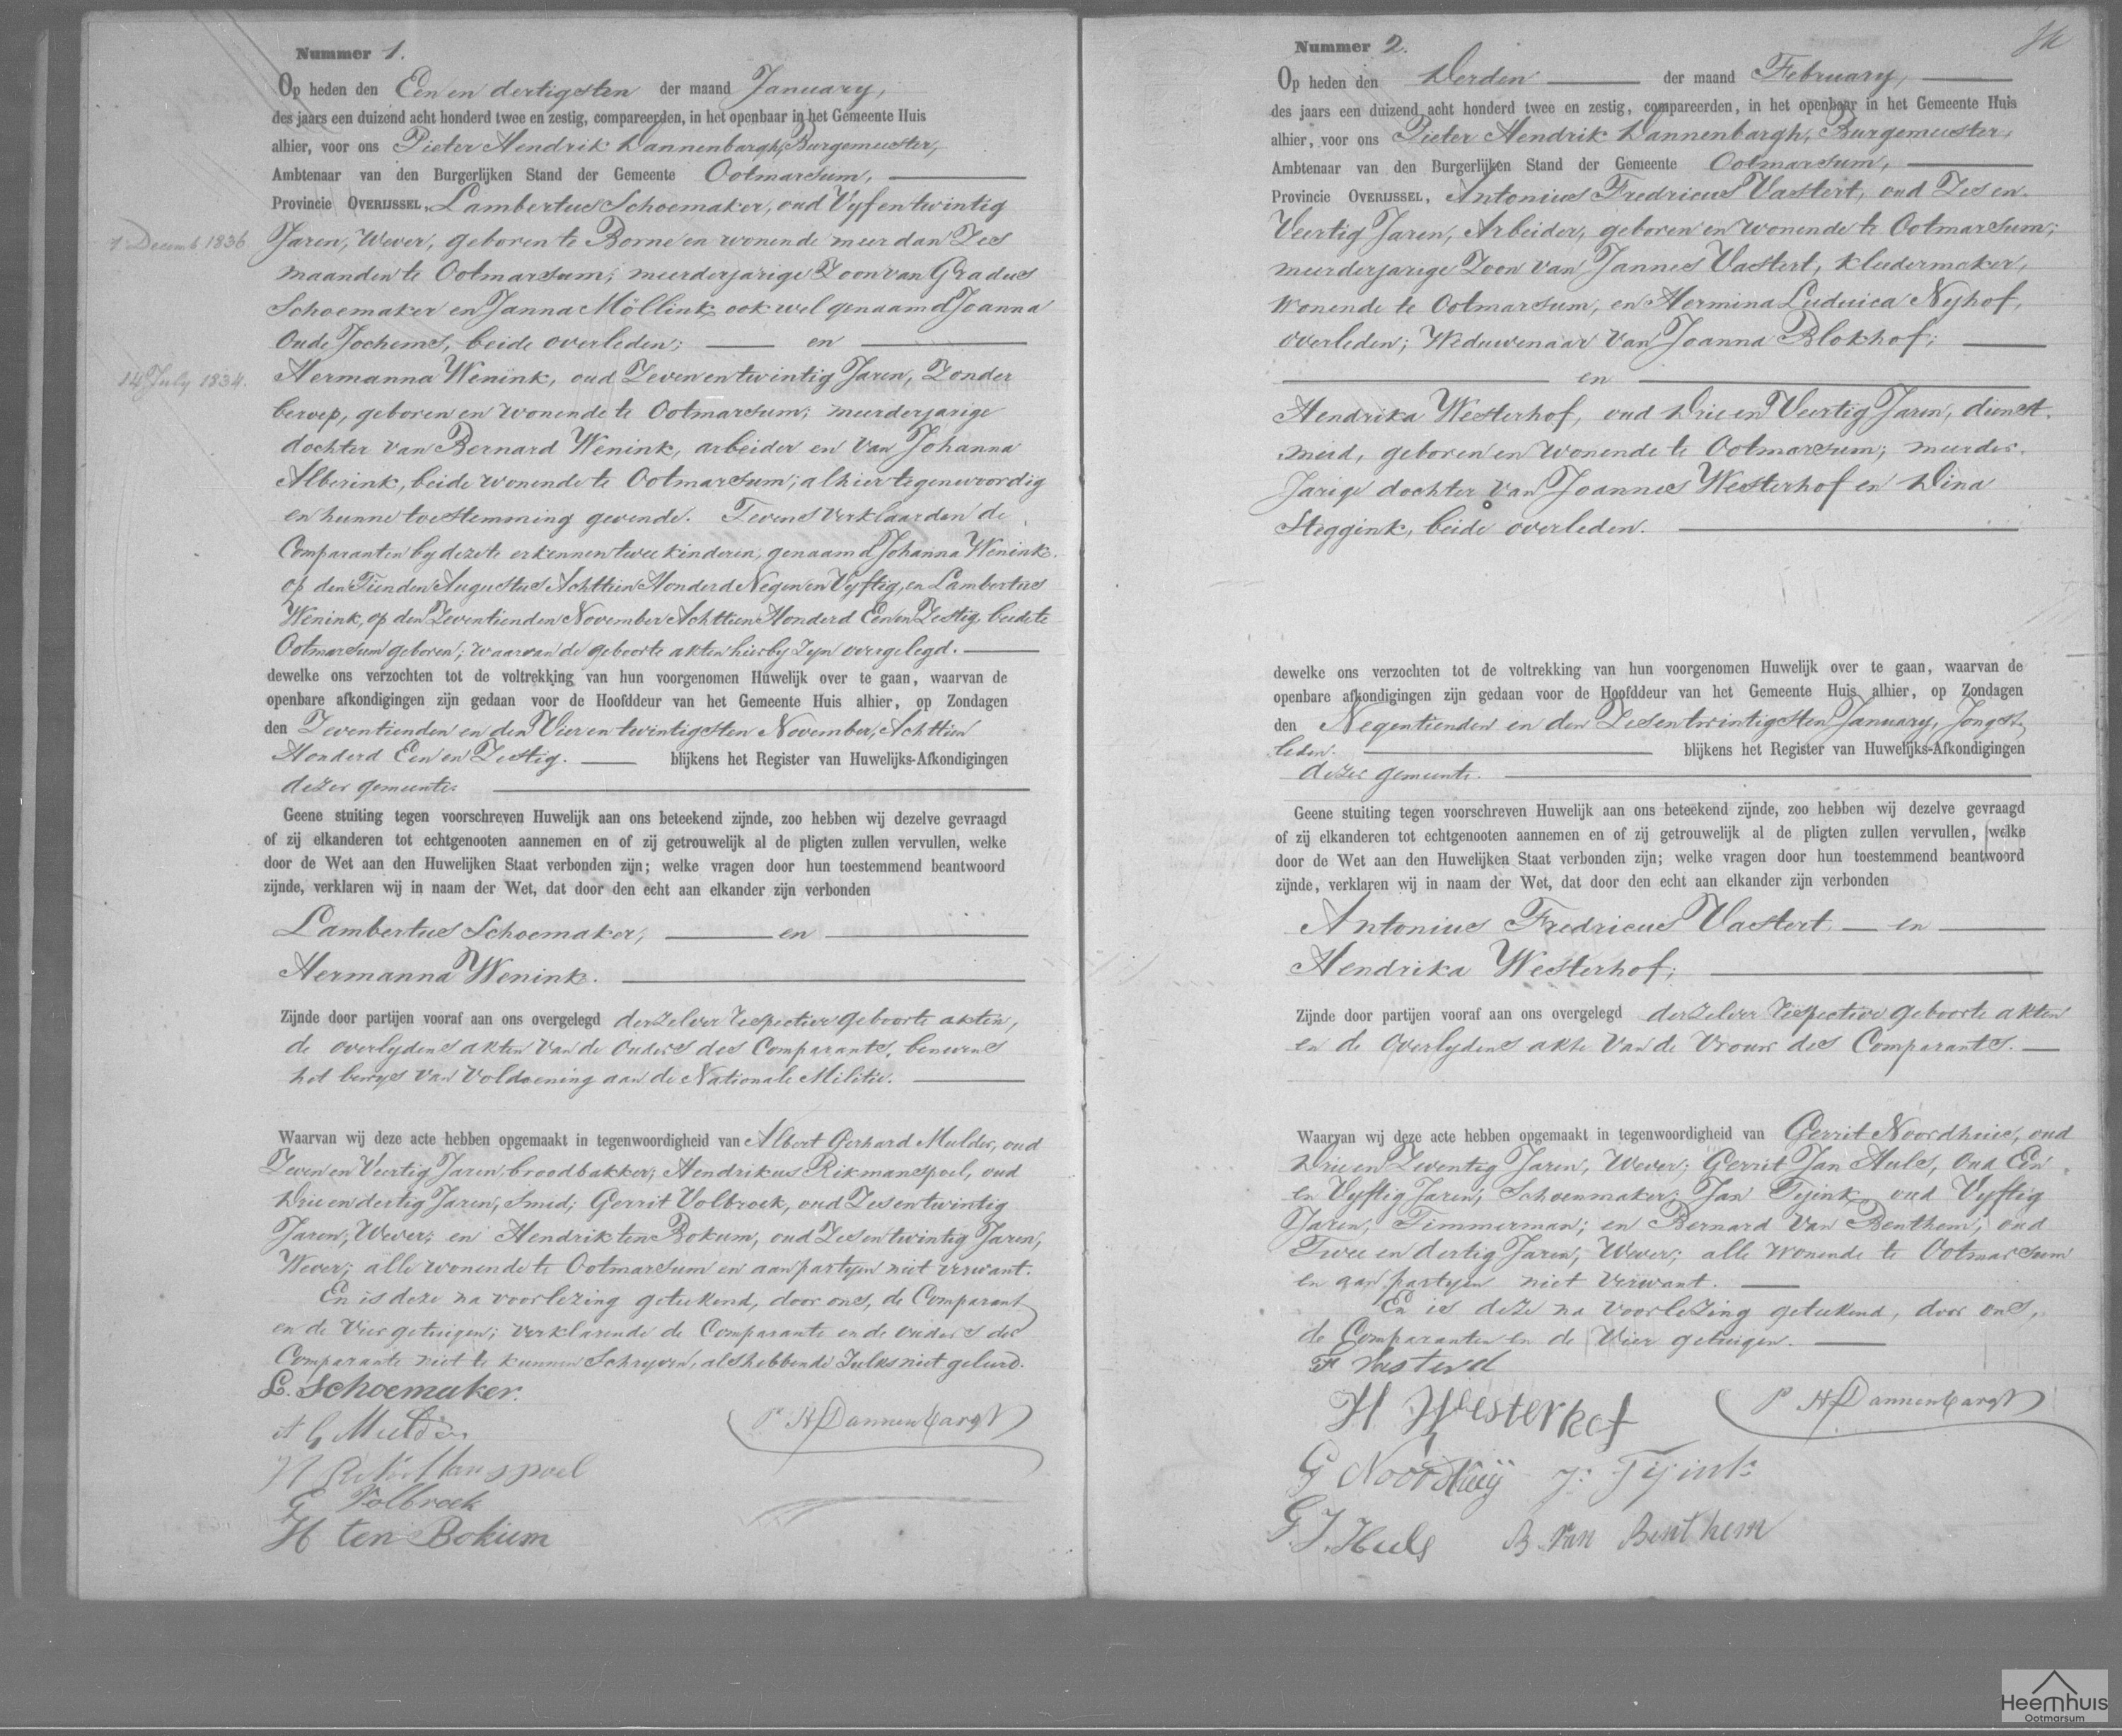 Nummer 1.
Op heden den Een en dertigsten der maand January,
des jaars een duizend acht honderd twee en zestig, compareerden, in het openbaar in het Gemeente Huis
alhier, voor ons Pieter Hendrik Dannenbargh, Burgemeester,
Ambtenaar van den Burgerlijken Stand der Gemeente Ootmarsum,
Provincie OVERIJSSEL, Lambertus Schoemaker, oud Vyf en twintig
1 Decemb 1836 Jaren, Wever, geboren te Borne en wonende meer dan Zes
maanden te Ootmarsum; meerderjarige Zoon van Gradus
Schoemaker en Janna Möllink ook wel genaamd Joanna
Oude Jochems, beide overleden; en
14 July 1834. Hermanna Wenink, oud Zeven en twintig Jaren, Zonder
beroep, geboren en wonende te Ootmarsum; meerderjarige
dochter van Bernard Wenink, arbeider en van Johanna
Alberink, beide wonende te Ootmarsum; alhier tegenwoordig
en hunne toestemming gevende. Tevens verklaarden de
Comparanten by deze te erkennen twee kinderen, genaamd Johanna Wenink.
op den Tienden Augustus Achttien Honderd Negen en Vyftig, en Lambertus
Wenink, op den Zeventienden November Achttien Honderd Een en Zestig, beide te
Ootmarsum geboren; waarvan de geboorte akten hierby zyn overgelegd.
dewelke ons verzochten tot de voltrekking van hun voorgenomen Huwelijk over te gaan, waarvan de
openbare afkondigingen zijn gedaan voor de Hoofddeur van het Gemeente Huis alhier, op Zondagen
den Zeventienden en den Vier en twintigsten November, Achttien
Honderd Een en Zestig. blijkens het Register van Huwelijks-Afkondigingen
dezer gemeente.
Geene stuiting tegen voorschreven Huwelijk aan ons beteekend zijnde, zoo hebben wij dezelve gevraagd
of zij elkanderen tot echtgenooten aannemen en of zij getrouwelijk al de pligten zullen vervullen, welke
door de Wet aan den Huwelijken Staat verbonden zijn; welke vragen door hun toestemmend beantwoord
zijnde, verklaren wij in naam der Wet, dat door den echt aan elkander zijn verbonden
Lambertus Schoemaker, en
Hermanna Wenink.
Zijnde door partijen vooraf aan ons overgelegd derzelver respective geboorte akten,
de overlydens akten van de Ouders des Comparants, benevens
het bewys van voldoening aan de Nationale Militie.
Waarvan wij deze acte hebben opgemaakt in tegenwoordigheid van Albert Gerhard Mulder, oud
Zeven en Veertig Jaren, broodbakker; Hendrikus Rikmanspoel, oud
Drie en dertig Jaren, Smid; Gerrit Volbroek, oud Zes en twintig
Jaren, Wever; en Hendrik ten Bokum, oud Zes en twintig Jaren,
Wever; alle wonende te Ootmarsum en aan partyen niet verwant.
En is deze na voorlezing geteekend, door ons, de Comparant
en de Vier getuigen; verklarende de Comparante en de ouders der
Comparante niet te kunnen Schryven, als hebbende zulks niet geleerd.
L. Schoemaker.
A G Mulder
P. H. Dannenbargh
H Rikmanspoel
G Volbroek
H ten Bokum
Nummer 2.
Op heden den Derden der maand February,
des jaars een duizend acht honderd twee en zestig, compareerden, in het openbaar in het Gemeente Huis
alhier, voor ons Pieter Hendrik Dannenbargh, Burgemeester,
Ambtenaar van den Burgerlijken Stand der Gemeente Ootmarsum,
Provincie OVERIJSSEL, Antonius Fredricus Vastert, oud Zes en
Veertig Jaren, Arbeider, geboren en wonende te Ootmarsum;
meerderjarige Zoon van Jannes Vastert, kleedermaker,
wonende te Ootmarsum, en Hermina Luduica Nyhof,
overleden; Weduwenaar van Joanna Blokhof;
en
Hendrika Westerhof, oud Drie en Veertig Jaren, dienst.
meid, geboren en wonende te Ootmarsum; meerder.
Jarige dochter van Joannes Westerhof en Dina
Steggink, beide overleden.
dewelke ons verzochten tot de voltrekking van hun voorgenomen Huwelijk over te gaan, waarvan de
openbare afkondigingen zijn gedaan voor de Hoofddeur van het Gemeente Huis alhier, op Zondagen
den Negentienden en den Zes en twintigsten January, Jongst,
leden. blijkens het Register van Huwelijks-Afkondigingen
dezer gemeente.
Geene stuiting tegen voorschreven Huwelijk aan ons beteekend zijnde, zoo hebben wij dezelve gevraagd
of zij elkanderen tot echtgenooten aannemen en of zij getrouwelijk al de pligten zullen vervullen, welke
door de Wet aan den Huwelijken Staat verbonden zijn; welke vragen door hun toestemmend beantwoord
zijnde, verklaren wij in naam der Wet, dat door den echt aan elkander zijn verbonden
Antonius Fredricus Vastert en
Hendrika Westerhof;
Zijnde door partijen vooraf aan ons overgelegd derzelver respective geboorte akten
en de Overlydens akte van de Vrouw des Comparants.
Waarvan wij deze acte hebben opgemaakt in tegenwoordigheid van Gerrit Noordhuis, oud
Drie en Zeventig Jaren, Wever; Gerrit Jan Huls, oud Een
en Vyftig Jaren, Schoenmaker; Jan Tyink oud Vyftig
Jaren, Timmerman; en Bernard van Benthem, oud
Twee en dertig Jaren, Wever; alle wonende te Ootmarsum
en aan partyen niet verwant.
En is deze na voorlezing geteekend, door ons,
de Comparanten en de Vier getuigen.
F Vasterd
H Westerhof
P. H. Dannenbargh
G Noordhuij J: Tijink
G. J. Huls B van Benthem
Heemhuis
Ootmarsum